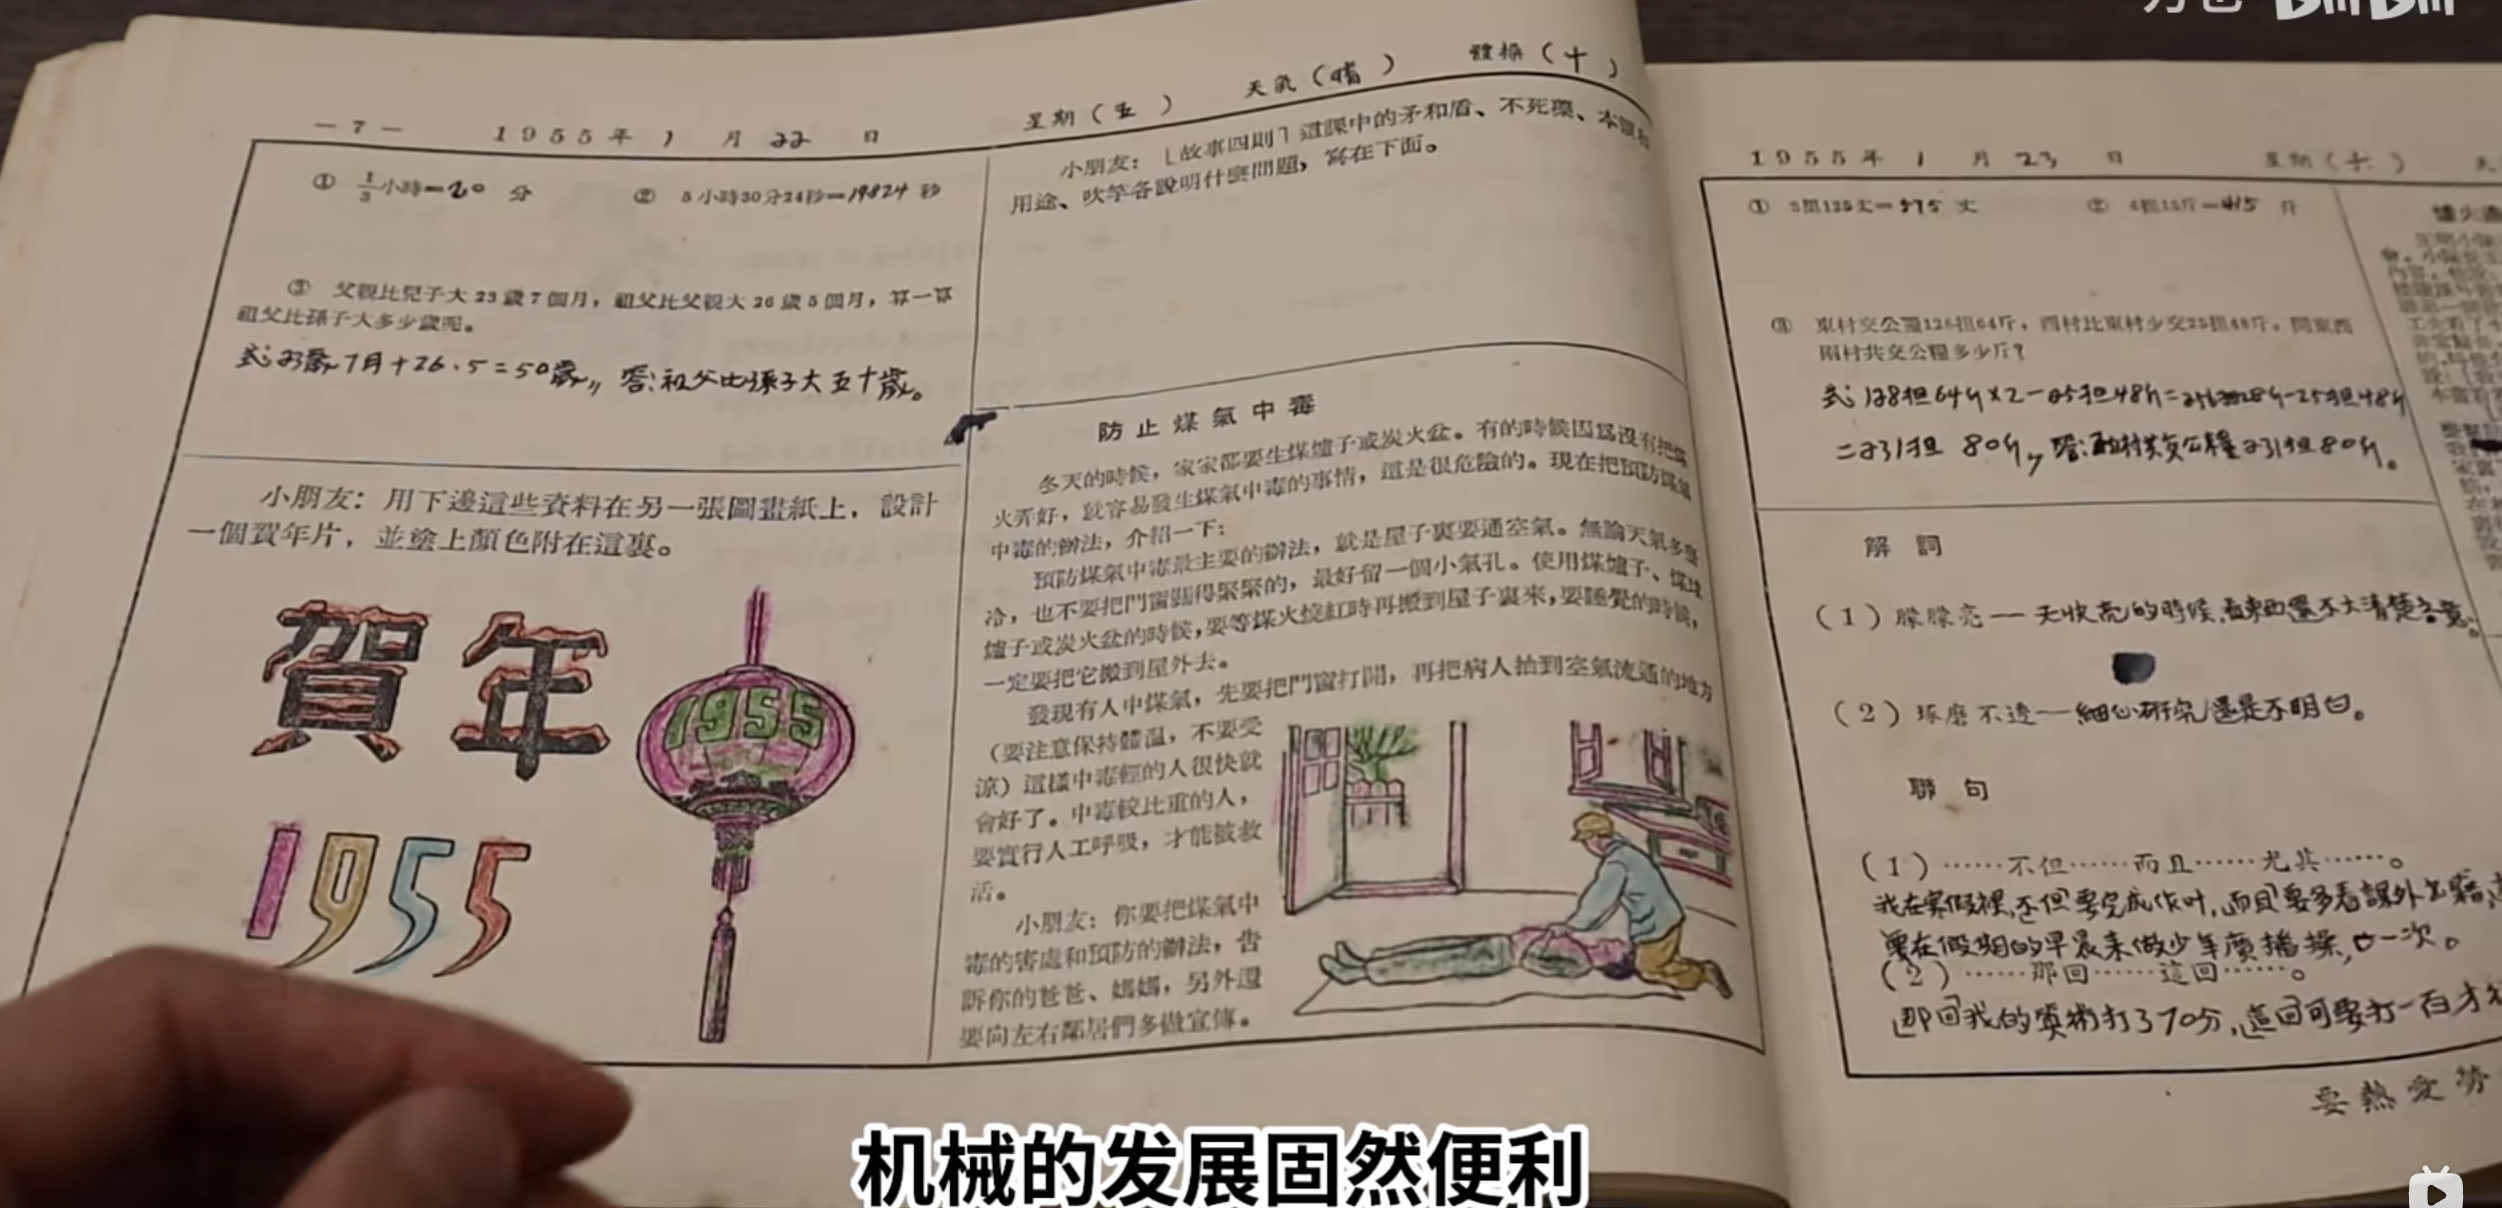 －7－ 1955年1月22日 星期（五） 天氣（晴） 體操（十）
① 1/3小時=20 分 ② 5小時30分24秒=19824 秒
③ 父親比兒子大23歲7個月，祖父比父親大26歲5個月，算一算
祖父比孫子大多少歲呢。
式：23歲7月+26.5=50歲，答：祖父比孫子大五十歲。
小朋友：用下邊這些資料在另一張圖畫紙上，設計
一個賀年片，並塗上顏色附在這裏。
賀年
1955
1955
小朋友：「故事四則」這課中的矛和盾、不死藥、本領和
用途、吹竽各說明什麼問題，寫在下面。
防止煤氣中毒
冬天的時候，家家都要生煤爐子或炭火盆。有的時候因爲沒有把煤
火弄好，就容易發生煤氣中毒的事情，這是很危險的。現在把預防煤氣
中毒的辦法，介紹一下：
預防煤氣中毒最主要的辦法，就是屋子裏要通空氣。無論天氣多麼
冷，也不要把門窗關得緊緊的，最好留一個小氣孔。使用煤爐子、煤球
爐子或炭火盆的時候，要等煤火燒紅時再搬到屋子裏來，要睡覺的時候，
一定要把它搬到屋外去。
發現有人中煤氣，先要把門窗打開，再把病人抬到空氣流通的地方
（要注意保持體溫，不要受
涼）這樣中毒輕的人很快就
會好了。中毒較比重的人，
要實行人工呼吸，才能被救
活。
小朋友：你要把煤氣中
毒的害處和預防的辦法，告
訴你的爸爸、媽媽，另外還
要向左右鄰居們多做宣傳。
1955年1月23日 星期（六）
① 3里125丈=575 丈 ② 4担15斤=415 斤
③ 東村交公糧128担64斤，西村比東村少交25担48斤，問東西
兩村共交公糧多少斤？
式：128担64斤×2－25担48斤=256担128斤-25担48斤
=231担 80斤，答：兩村共交公糧231担80斤。
解詞
（1）朦朦亮——天快亮的時候，看東西還不大清楚
（2）琢磨不透——細心研究還是不明白。
聯句
（1）……不但……而且……尤其……。
我在寒假裡，不但要完成作叶，而且要多看課外書籍，
要在假期的早晨來做少年廣播操，一次。
（2）……那回……這回……。
那回我的算術打了70分，這回可要打一百才
要熱愛勞
机械的发展固然便利